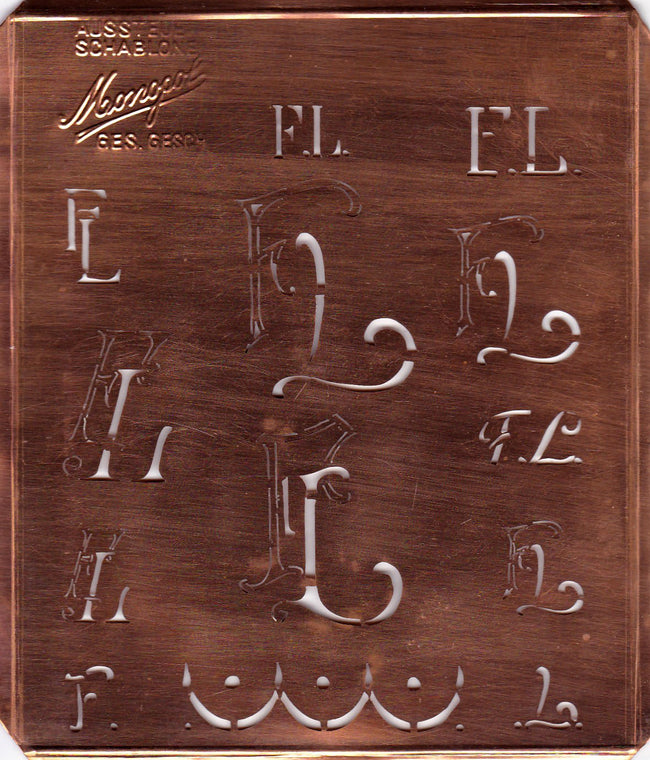 AUSSTEUER
SCHABLONE
Monopol
GES. GESCH
F.L. F.L.
FL
FL FL
FL
F.L.
FL
FL FL
F. L.